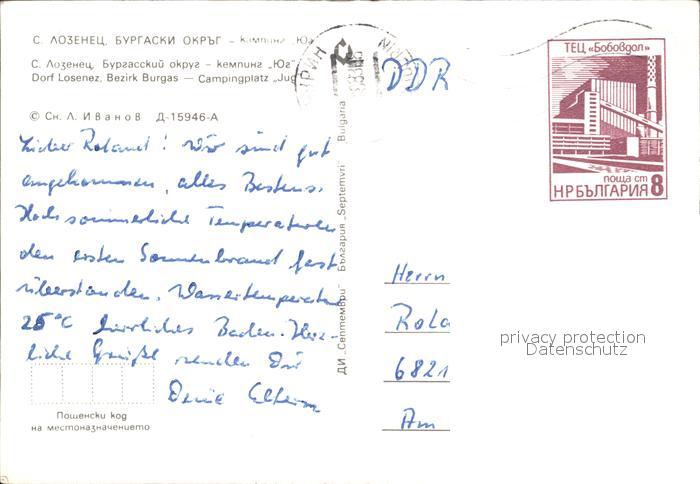 С. ЛОЗЕНЕЦ, БУРГАСКИ ОКРЪГ – кемпинг „Юг"
С. Лозенец, Бургасский округ – кемпинг „Юг"
Dorf Losenez, Bezirk Burgas — Campingplatz „Jug
© Сн. Л. Иванов Д-15946-А
Lieber Roland! Wir sind gut
angekommen, alles Bestens.
Hochsommerliche Temperaturen
den ersten Sonnenbrand fast
überstanden. Wassertemperatur
25°C herrliches Baden. Herz-
liche Grüße senden Dir
Deine Eltern
Пощенски код
на местоназначението
ДИ „Септември" България „Septemvri" Bulgaria
DDR
ТЕЦ „Бобовдол"
поща ст
НР БЪЛГАРИЯ 8
Herrn
Rola
6821
Am
privacy protection
Datenschutz